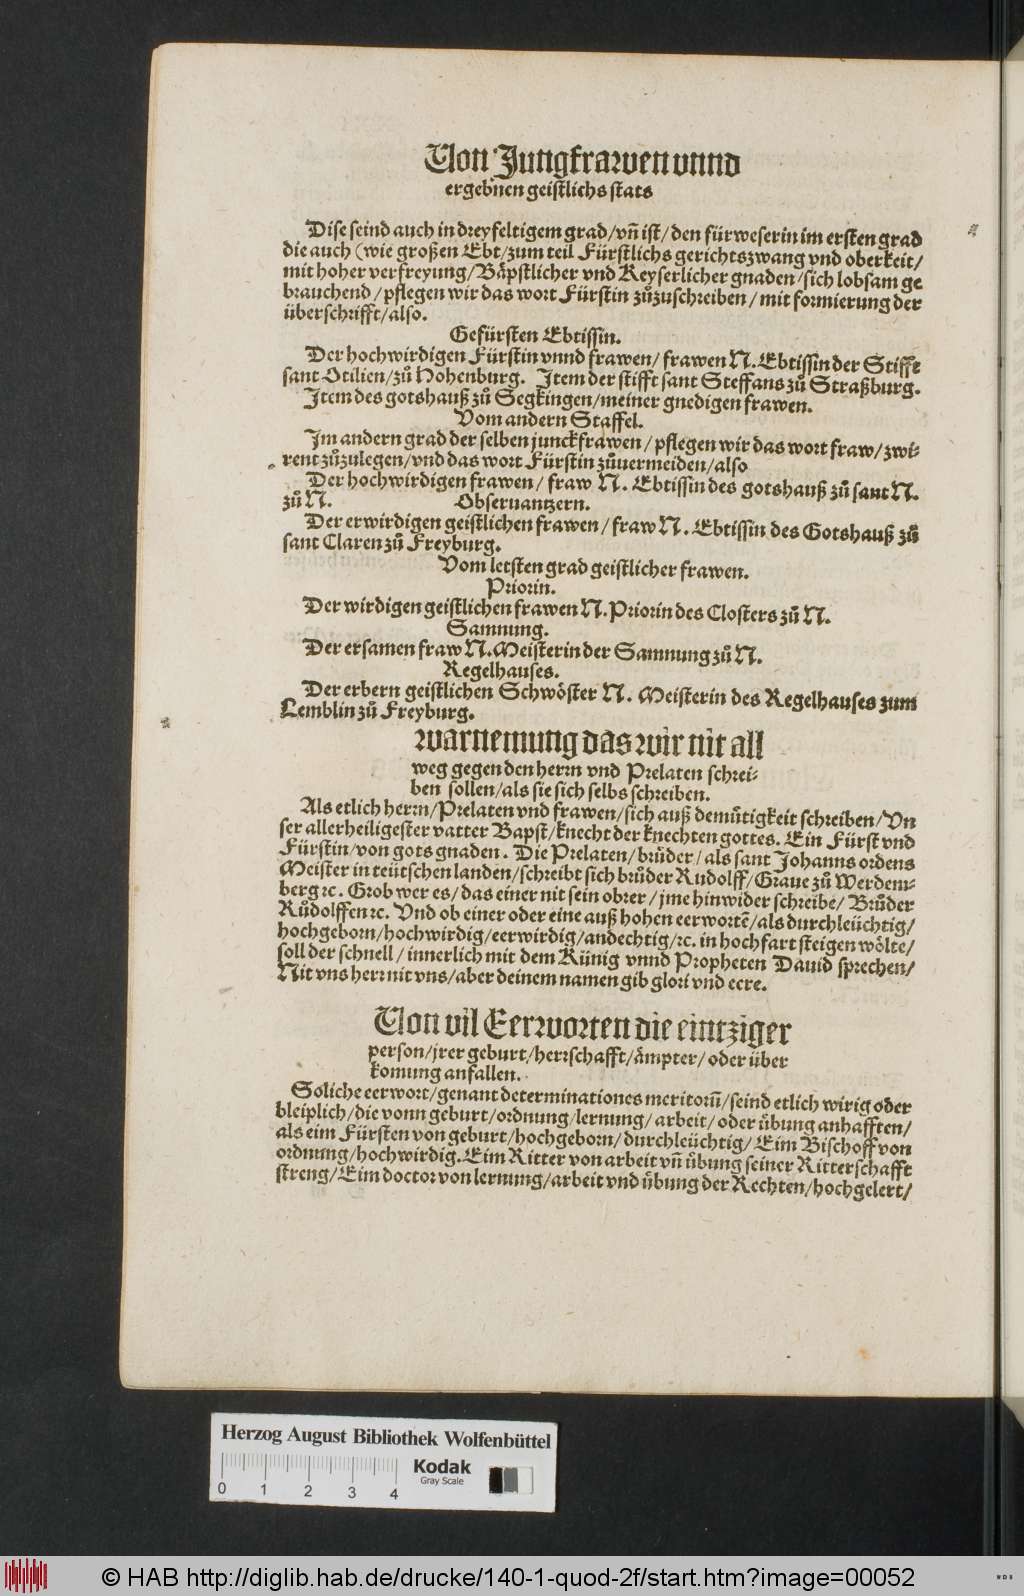 Von Jungfrawen vnnd
ergebnen geistlichs stats
Dise seind auch in dreyfeltigem grad/vñ ist/den fürweserin im ersten grad
die auch (wie großen Ebt/zum teil Fürstlichs gerichtszwang vnd oberkeit/
mit hoher verfreyung/Bäpstlicher vnd Keyserlicher gnaden/sich lobsam ge
brauchend/pflegen wir das wort Fürstin zůzuschreiben/mit formierung der
überschrifft/also.
Gefürsten Ebtissin.
Der hochwirdigen Fürstin vnnd frawen/frawen N. Ebtissin der Stifft
sant Otilien/zů Hohenburg. Item der stifft sant Steffans zů Straßburg.
Item des gotshauß zů Segkingen/meiner gnedigen frawen.
Vom andern Staffel.
Im andern grad der selben junckfrawen/pflegen wir das wort fraw/zwi-
rent zůzulegen/vnd das wort Fürstin zůuermeiden/also
Der hochwirdigen frawen/fraw N. Ebtissin des gotshauß zů sant N.
zů N. Obseruantzern.
Der erwirdigen geistlichen frawen/fraw N. Ebtissin des Gotshauß zů
sant Claren zů Freyburg.
Vom letsten grad geistlicher frawen.
Priorin.
Der wirdigen geistlichen frawen N. Priorin des Closters zů N.
Samnung.
Der ersamen fraw N. Meisterin der Samnung zů N.
Regelhauses.
Der erbern geistlichen Schwöster N. Meisterin des Regelhauses zum
Lemblin zů Freyburg.
warnemung das wir nit all
weg gegen den herrn vnd Prelaten schrei-
ben sollen/als sie sich selbs schreiben.
Als etlich herrn/Prelaten vnd frawen/sich auß demütigkeit schreiben/Vn
ser allerheiligester vatter Bapst/knecht der knechten gottes. Ein Fürst vnd
Fürstin/von gots gnaden. Die Prelaten/brůder/als sant Johanns ordens
Meister in teütschen landen/schreibt sich brůder Rudolff/Graue zů Werdem-
berg ꝛc. Grob wer es/das einer nit sein obrer/jme hinwider schreibe/Brůder
Růdolffen ꝛc. Vnd ob einer oder eine auß hohen eerwortē/als durchleüchtig/
hochgeborn/hochwirdig/eerwirdig/andechtig/ꝛc. in hochfart steigen wölte/
soll der schnell/innerlich mit dem Künig vnnd Propheten Dauid sprechen/
Nit vns herr nit vns/aber deinem namen gib glori vnd eere.
Von vil Eerworten die eintziger
person/jrer geburt/herrschafft/ämpter/oder über
komung anfallen.
Soliche eerwort/genant determinationes meritorū/seind etlich wirig oder
bleiplich/die vonn geburt/ordnung/lernung/arbeit/oder übung anhafften/
als eim Fürsten von geburt/hochgeborn/durchleüchtig/Eim Bischoff von
ordnung/hochwirdig. Eim Ritter von arbeit vñ übung seiner Ritterschafft
streng/Eim doctor von lernung/arbeit vnd übung der Rechten/hochgelert/
Herzog August Bibliothek Wolfenbüttel
Kodak
Gray Scale
0 1 2 3 4
© HAB http://diglib.hab.de/drucke/140-1-quod-2f/start.htm?image=00052